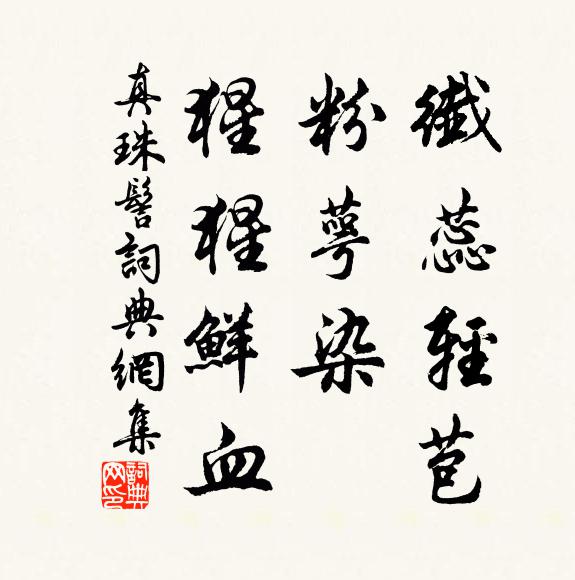 纖蕊輕苞
粉萼染
猩猩鮮血
真珠髻詞典網集
詞典网印